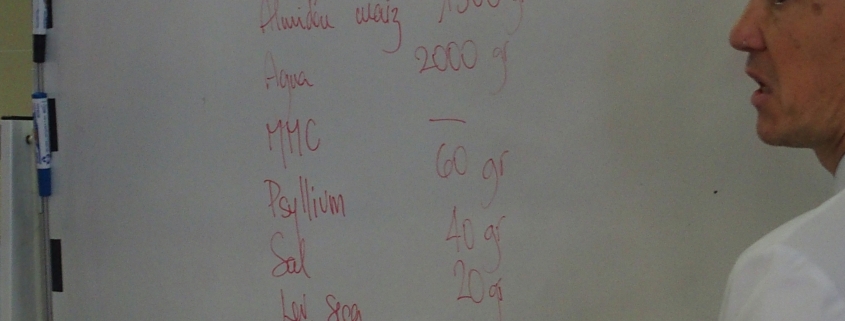 Almidón maiz 1500 g
Agua 2000 g
MMC —
Psyllium 60 gr
Sal 40 gr
Lev seca 20 gr